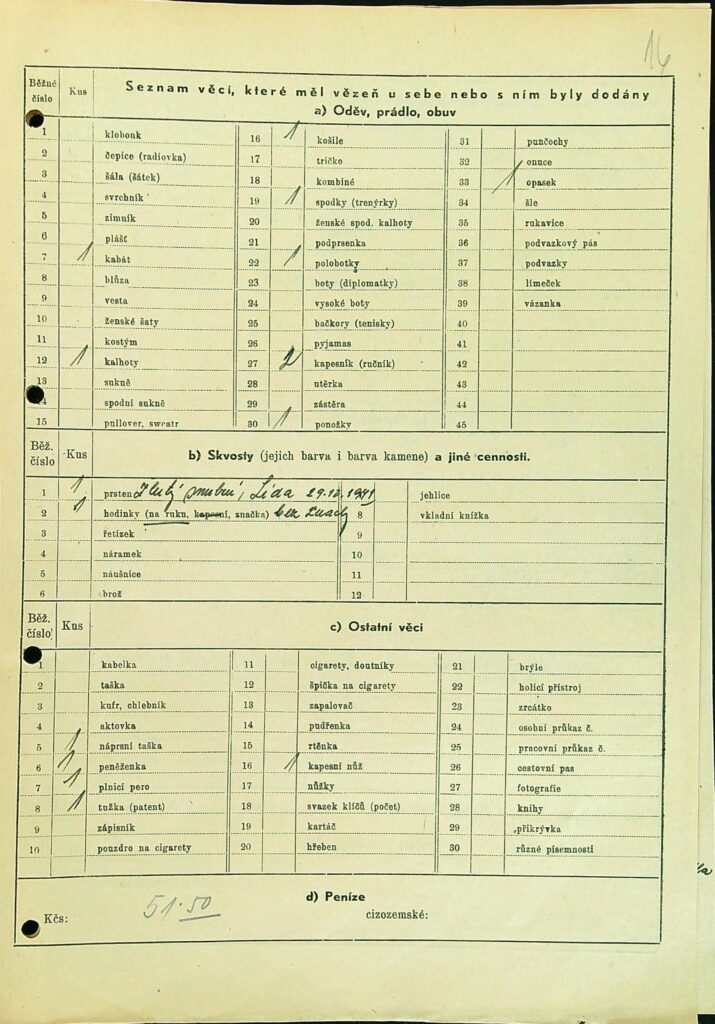 16
Běžné číslo Kus Seznam věcí, které měl vězeň u sebe nebo s ním byly dodány
a) Oděv, prádlo, obuv
1 klobouk 16 1 košile 31 punčochy
2 čepice (radiovka) 17 tričko 32 onuce
3 šála (šátek) 18 kombiné 33 1 opasek
4 svrchník 19 1 spodky (trenýrky) 34 šle
5 zimník 20 ženské spod. kalhoty 35 rukavice
6 plášť 21 podprsenka 36 podvazkový pás
7 1 kabát 22 1 polobotky 37 podvazky
8 blůza 23 boty (diplomatky) 38 límeček
9 vesta 24 vysoké boty 39 vázanka
10 ženské šaty 25 bačkory (tenisky) 40
11 kostým 26 pyjamas 41
12 1 kalhoty 27 2 kapesník (ručník) 42
13 sukně 28 utěrka 43
14 spodní sukně 29 zástěra 44
15 pullover, sweatr 30 1 ponožky 45
Běž. číslo Kus b) Skvosty (jejich barva i barva kamene) a jiné cennosti.
1 1 prsten žlutý snubní, Lída 29.12.1941 jehlice
2 1 hodinky (na ruku, kapesní, značka) bez značky 8 vkladní knížka
3 řetízek 9
4 náramek 10
5 náušnice 11
6 brož 12
Běž. číslo Kus c) Ostatní věci
1 kabelka 11 cigarety, doutníky 21 brýle
2 taška 12 špička na cigarety 22 holicí přístroj
3 kufr, chlebník 13 zapalovač 23 zrcátko
4 aktovka 14 pudřenka 24 osobní průkaz č.
5 1 náprsní taška 15 rtěnka 25 pracovní průkaz č.
6 1 peněženka 16 1 kapesní nůž 26 cestovní pas
7 1 plnicí pero 17 nůžky 27 fotografie
8 1 tužka (patent) 18 svazek klíčů (počet) 28 knihy
9 zápisník 19 kartáč 29 přikrývka
10 pouzdro na cigarety 20 hřeben 30 různé písemnosti
d) Peníze
Kčs: 51·50 cizozemské: